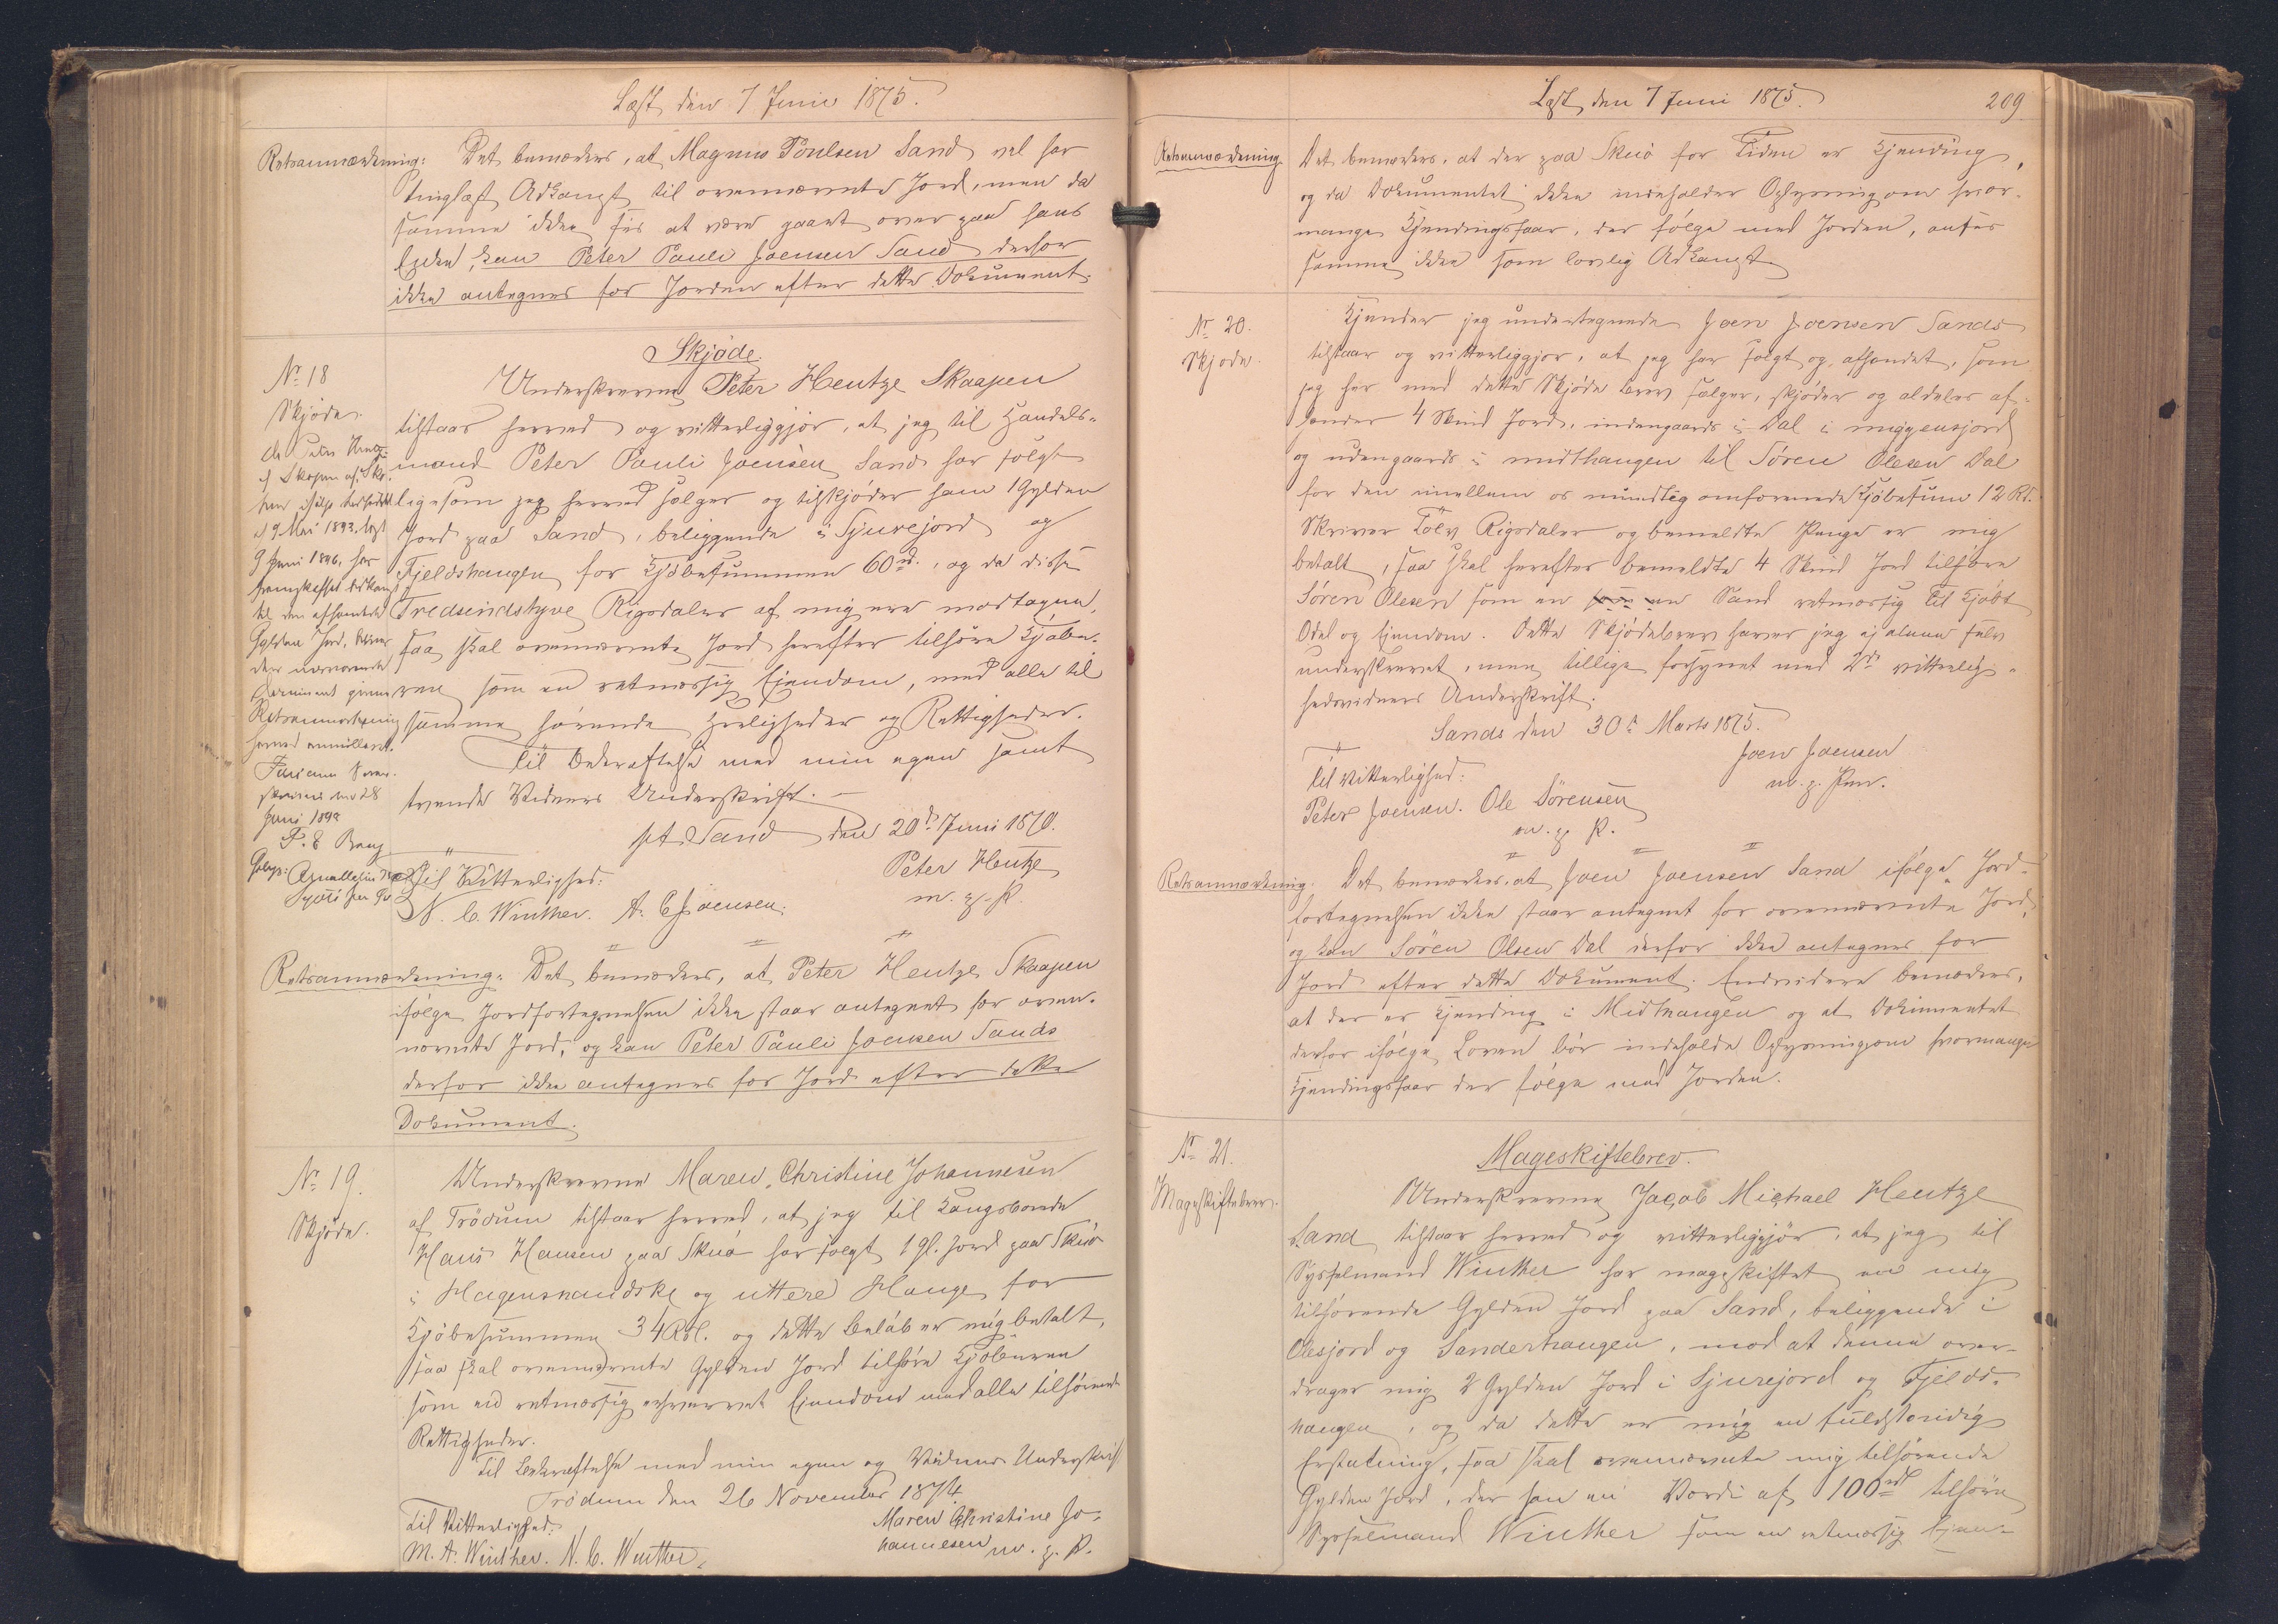 Læst den 7 Juni 1875.
Retsanmærkning: Det bemærkes, at Magnus Poulsen Sand vel har
tinglæst Adkomst til ovennævnte Jord, men da
samme ikke sés at være gaaet over paa hans
Enke, kan Peter Pauli Joensen Sand derfor
ikke antegnes for Jorden efter dette Dokument.
Skjøde.
No 18
Skjøde.
Underskrevne Peter Hentze Skaapen
tilstaar herved og vitterliggjør, at jeg til Handels-
mand Peter Pauli Joensen Sand har solgt
ligesom jeg herved sælger og tilskjøder ham 1 Gylden
Jord paa Sand, beliggende i Sjurejord og
Fjeldshaugen for Kjøbesummen 60 rd., og da disse
Tredsindstyve Rigsdaler af mig ere modtagne,
saa skal ovennævnte Jord herefter tilhøre Kjøbe-
ren som en retmæssig Ejendom, med alle til
samme hørende Herligheder og Rettigheder.
Til Bekræftelse med min egen samt
tvende Vidners Underskrift.
pt. Sand den 20de Juni 1870.
Peter Hentze
m. p. P.
Til Vitterlighed:
N. C. Winther. A. C. Joensen.
9 Mai 1893, læst
9 Juni 1896, har
til den afhændede
Gylden Jord, bliver
Retsanmærkning
herved annulleret.
28
Juni 1892
F. E. Bang
Retsanmærkning: Det bemærkes, at Peter Hentze Skaapen
ifølge Jordfortegnelsen ikke staar antegnet for oven-
nævnte Jord, og kan Peter Pauli Joensen Sands
derfor ikke antegnes for Jord efter dette
Dokument.
No 19.
Skjøde.
Underskrevne Maren Christine Johannesen
af Trödum tilstaar herved, at jeg til Kongsbonde
Hans Hansen paa Skuø har solgt 1 Gl. Jord paa Skuø
i Hagenshandske og uttere Hauge for
Kjøbesummen 34 Rdl. og dette Beløb er mig betalt,
saa skal ovennævnte Gylden Jord tilhøre Kjøberen
som en retmæssig erhvervet Ejendom med alle tilhørende
Rettigheder.
Til Bekræftelse med min egen og Vidners Underskrift
Trödum den 26 November 1874.
Maren Christine Jo-
hannesen m. p. P.
Til Vitterlighed:
M. A. Winther. N. C. Winther.
Læst den 7 Juni 1875.
209
Retsanmærkning
Det bemærkes, at der paa Skuø for Tiden er Kjending,
og da Dokumentet ikke indeholder Oplysning om hvor-
mange Kjendingsfaar, der følge med Jorden, ansés
samme ikke som lovlig Adkomst
No 20.
Skjøde.
Kjender jeg undertegnede Joen Joensen Sands
tilstaar og vitterliggjør, at jeg har solgt og afhændet, som
jeg her med dette Skjøde brev sælger, skjøder og aldeles af-
hænder 4 Skind Jord, indengaards i Dal i miggensjord
og udengaards i midthaugen til Søren Olesen Dal
for den imellem os mundtlig omforenede Kjøbesum 12 Rd.
Skriver Tolv Rigsdaler og bemeldte Penge er mig
betalt, saa skal herefter bemeldte 4 Skind Jord tilhøre
Søren Olesen som en som en Sand retmæssig til Kjøbt
Odel og Ejendom. Dette Skjødebrev haver jeg ej alene selv
underskrevet, men tillige forsynet med 2de vitterlig-
hedsvidners Underskrift.
Sands den 30te Marts 1875.
Joen Joensen
m. p. Pen.
Til Vitterlighed:
Peter Joensen. Ole Sörensen
m. p. P.
Retsanmærkning. Det bemærkes, at Joen Joensen Sand ifølge Jord-
fortegnelsen ikke staar antegnet for ovennævnte Jord,
og kan Søren Olsen Dal derfor ikke antegnes for
Jord efter dette Dokument. Endvidere bemærkes,
at der er Kjending i Midthaugen og at Dokumentet
derfor ifølge Loven bør indeholde Oplysning om hvormange
Kjendingsfaar der følge med Jorden.
No 21.
Mageskiftebrev.
Mageskiftebrev.
Underskrevne Jacob Michael Hentze
Sand tilstaar herved og vitterliggjør, at jeg til
Sysselmand Winther har mageskiftet en mig
tilhørende Gylden Jord paa Sand, beliggende i
Olesjord og Sanderhaugen, mod at denne over-
drager mig 2 Gylden Jord i Sjurejord og Fjelds-
haugen, og da dette er mig en fuldstændig
Erstatning, saa skal ovennævnte mig tilhørende
Gylden Jord, der har en Værdi af 100 rdl tilhøre
Sysselmand Winther som en retmæssig Ejen-